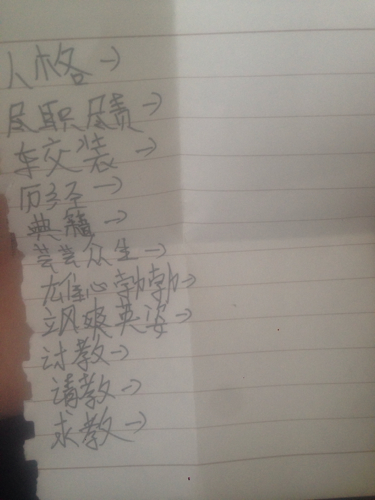 人格→
尽职尽责→
车交装→
历经→
典籍→
芸芸众生→
雄心勃勃→
飒爽英姿→
讨教→
请教→
求教→